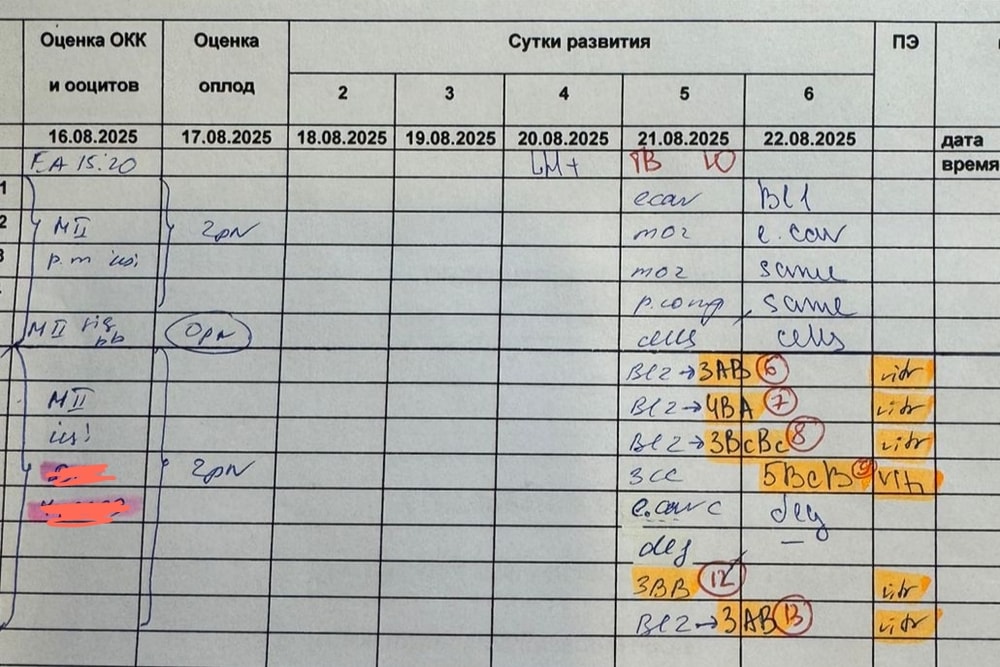 Оценка ОКК и ооцитов Оценка оплод Сутки развития ПЭ
2 3 4 5 6
16.08.2025 17.08.2025 18.08.2025 19.08.2025 20.08.2025 21.08.2025 22.08.2025 дата
FA 15:20 LM+ время
1 ecav Bl1
2 MII 2pn mor e.cav
3 p.m icsi mor same
p.comp same
MII pb 0pn cells cells
Bl2→3AB 6 vitr
MII Bl2→4BA 7 vitr
icsi Bl2→3BcBc 8 vitr
2pn 3CC 5BcB 9 vitr
e.cav c deg
deg –
3BB 12 vitr
Bl2→3AB 13 vitr